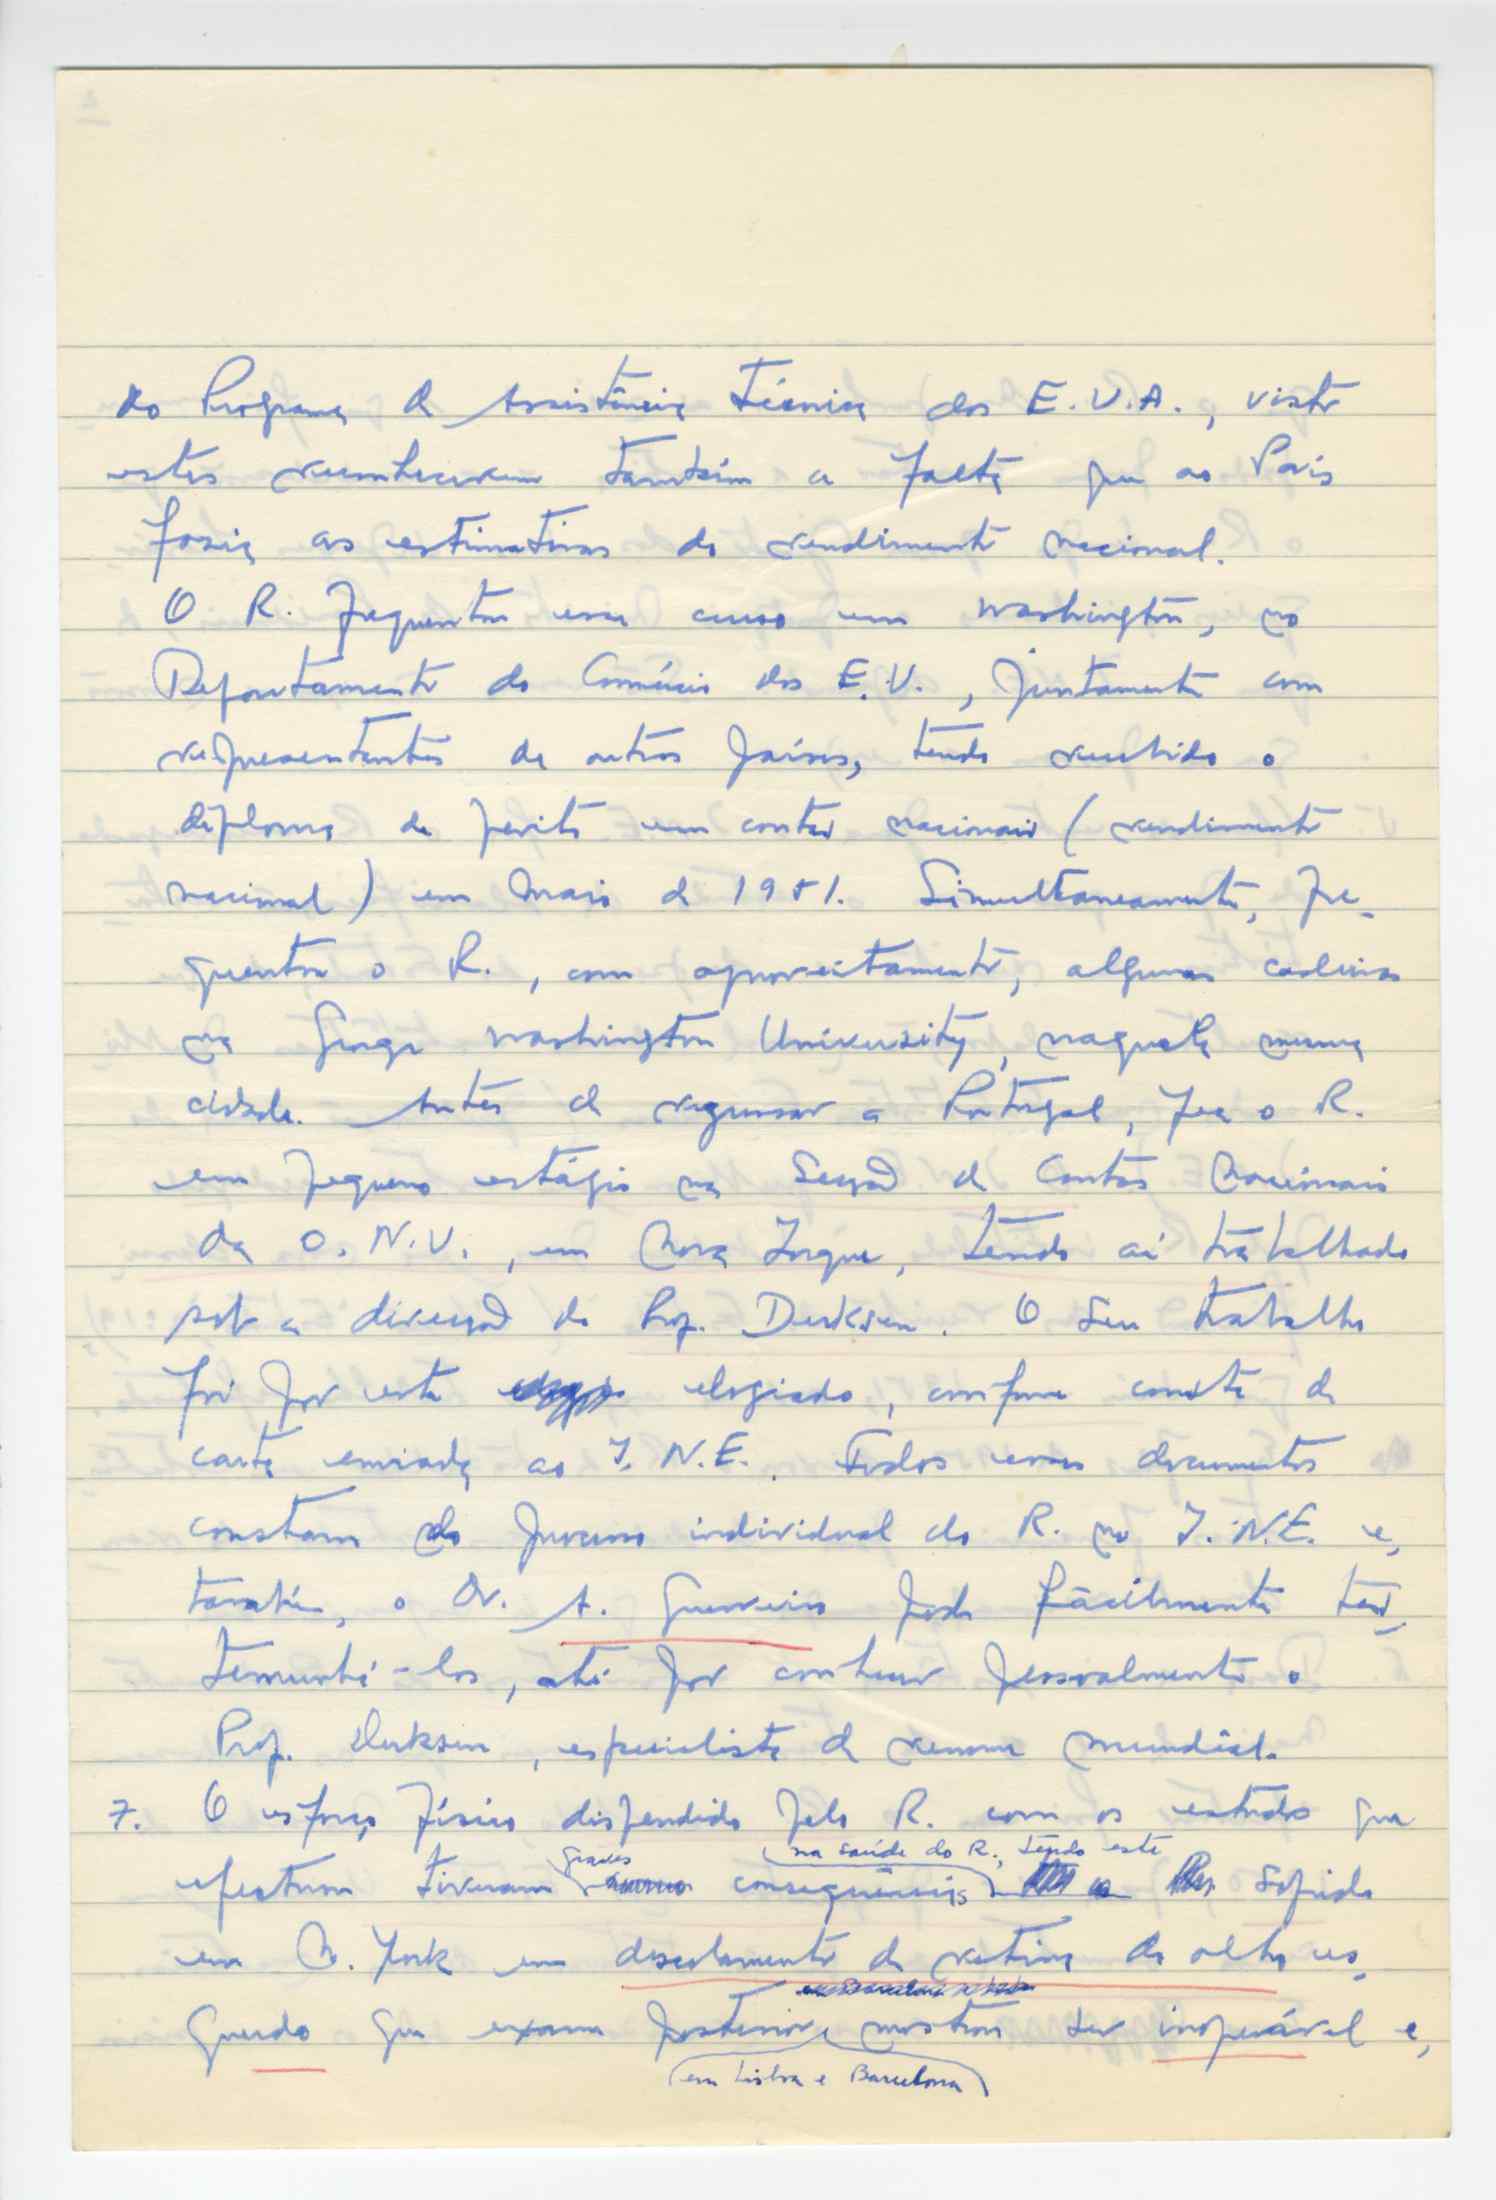 do Programa de Assistência Técnica dos E.U.A., visto
estes reconhecerem também a falta que ao País
fazia as estimativas do rendimento nacional.
O R. frequentou esse curso em Washington, no
Departamento do Comércio dos E.U., juntamente com
representantes de outros países, tendo recebido o
diploma de perito em contas nacionais (rendimento
nacional) em Maio de 1951. Simultaneamente, fre-
quentou o R., com aproveitamento, algumas cadeiras
na George Washington University, naquela mesma
cidade. Antes de regressar a Portugal, fez o R.
um pequeno estágio na Secção de Contas Nacionais
da O.N.U., em Nova Iorque, tendo aí trabalhado
sob a direcção do Prof. Derksen. O seu trabalho
foi por este elogiado, conforme consta de
carta enviada ao I.N.E.. Todos esses documentos
constam do processo individual do R. no I.N.E. e,
também, o Dr. A. Guerreiro pode fàcilmente tes-
temunhá-los, até por conhecer pessoalmente o
Prof. Derksen, especialista de renome mundial.
7. O esforço físico dispendido pelo R. com os estudos que
graves na saúde do R., tendo este
efectuou tiveram consequências sofrido
em N. York um descolamento da retina do olho es-
querdo que exame posterior mostrou ser inoperável e,
em Lisboa e Barcelona